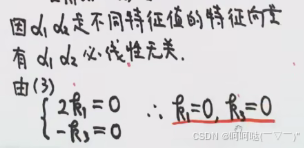 因α₁ α₂是不同特征值的特征向量
有 α₁ α₂ 必线性无关.
由(3)
{ 2k₁=0
-k₃=0 ∴ k₁=0, k₃=0
CSDN @呵呵哒(￣▽￣)"